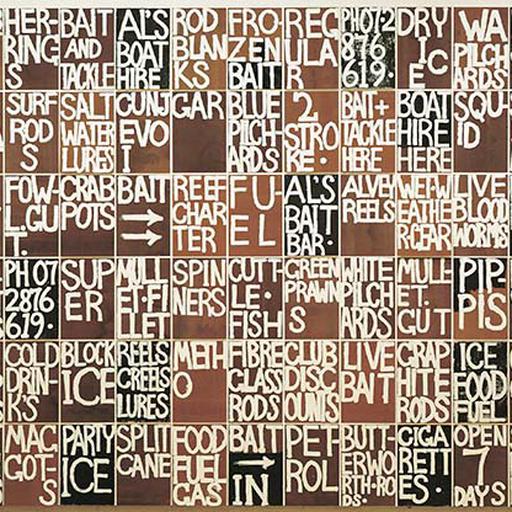 HER-
RING
S
BAIT
AND
TACKLE
AL'S
BOAT
HIRE
ROD
BLAN
KS
FRO-
ZEN
BAIT
REG
ULA
R
PH072
876
619·
DRY
IC
E
WA
PILCH
ARDS
SURF
ROD
S
SALT
WATER
LURES
CUNJ
EVO
I
GAR
BLUE
PILCH-
ARDS
2
STRO
KE·
BAIT+
TACKLE
HERE
BOAT
HIRE
HERE
SQU-
ID
FOW-
L.GU
T.
CRAB
POTS
BAIT
→
→
REEF
CHAR
TER
FU-
EL
AL'S
BAIT
BAR·
ALVEY
REELS
WET-W
EATHE
R.GEAR
LIVE
BLOOD
WORMS
PH 07
2876
619·
SUP
ER
MULL
ET·FI
LLET
SPIN
NERS
CUTT-
LE·
FISH
GREEN
PRAWN
S
WHITE
PILCH
ARDS
MULL
ET.
GUT
PIP
PIS
COLD
DRIN-
K'S
BLOCK
ICE
REELS
CREELS
LURES
METH
O
FIBRE
GLASS
RODS
CLUB
DISC
OUNTS
LIVE
BAIT
GRAP
HITE
RODS
ICE
FOOD
FUEL
MAG
GOT-
S
PARTY
ICE
SPLIT
CANE
FOOD
FUEL
GAS
BAIT
→
IN
PET-
ROL
BUTT-
ERWO
RTH·RO
DS·
CIGA
RETT
ES·
OPEN
7
DAYS